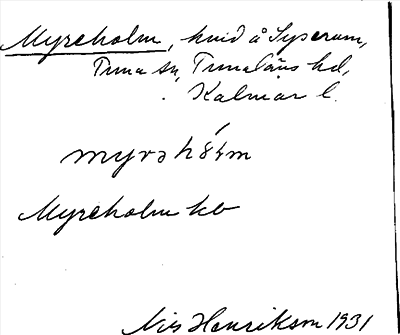 Myreholm, kvid å Syserum,
Tuna sn, Tunaläns hd,
Kalmar l.
myrəhólm
Myreholm kb
Nils Henrikson 1931